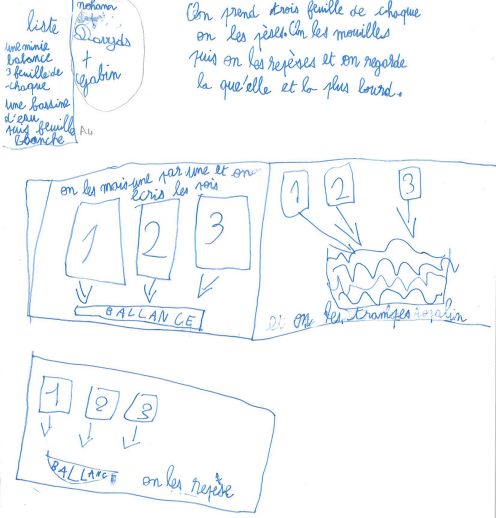 liste
une minie
balance
3 feuille de
chaque
une bassine
d'eau
feuille A4
blanche
mohamar
Diaryds
+
rejabin
On prend trois feuille de chaque
on les pèses. On les mouilles
puis on les repèses et on regarde
la que'elle et la plus lourd.
on les mais une par une et on
écris les pois
1 2 3
BALLANCE
1 2 3
et on les trampes
1 2 3
BALLANCE
on les repèse